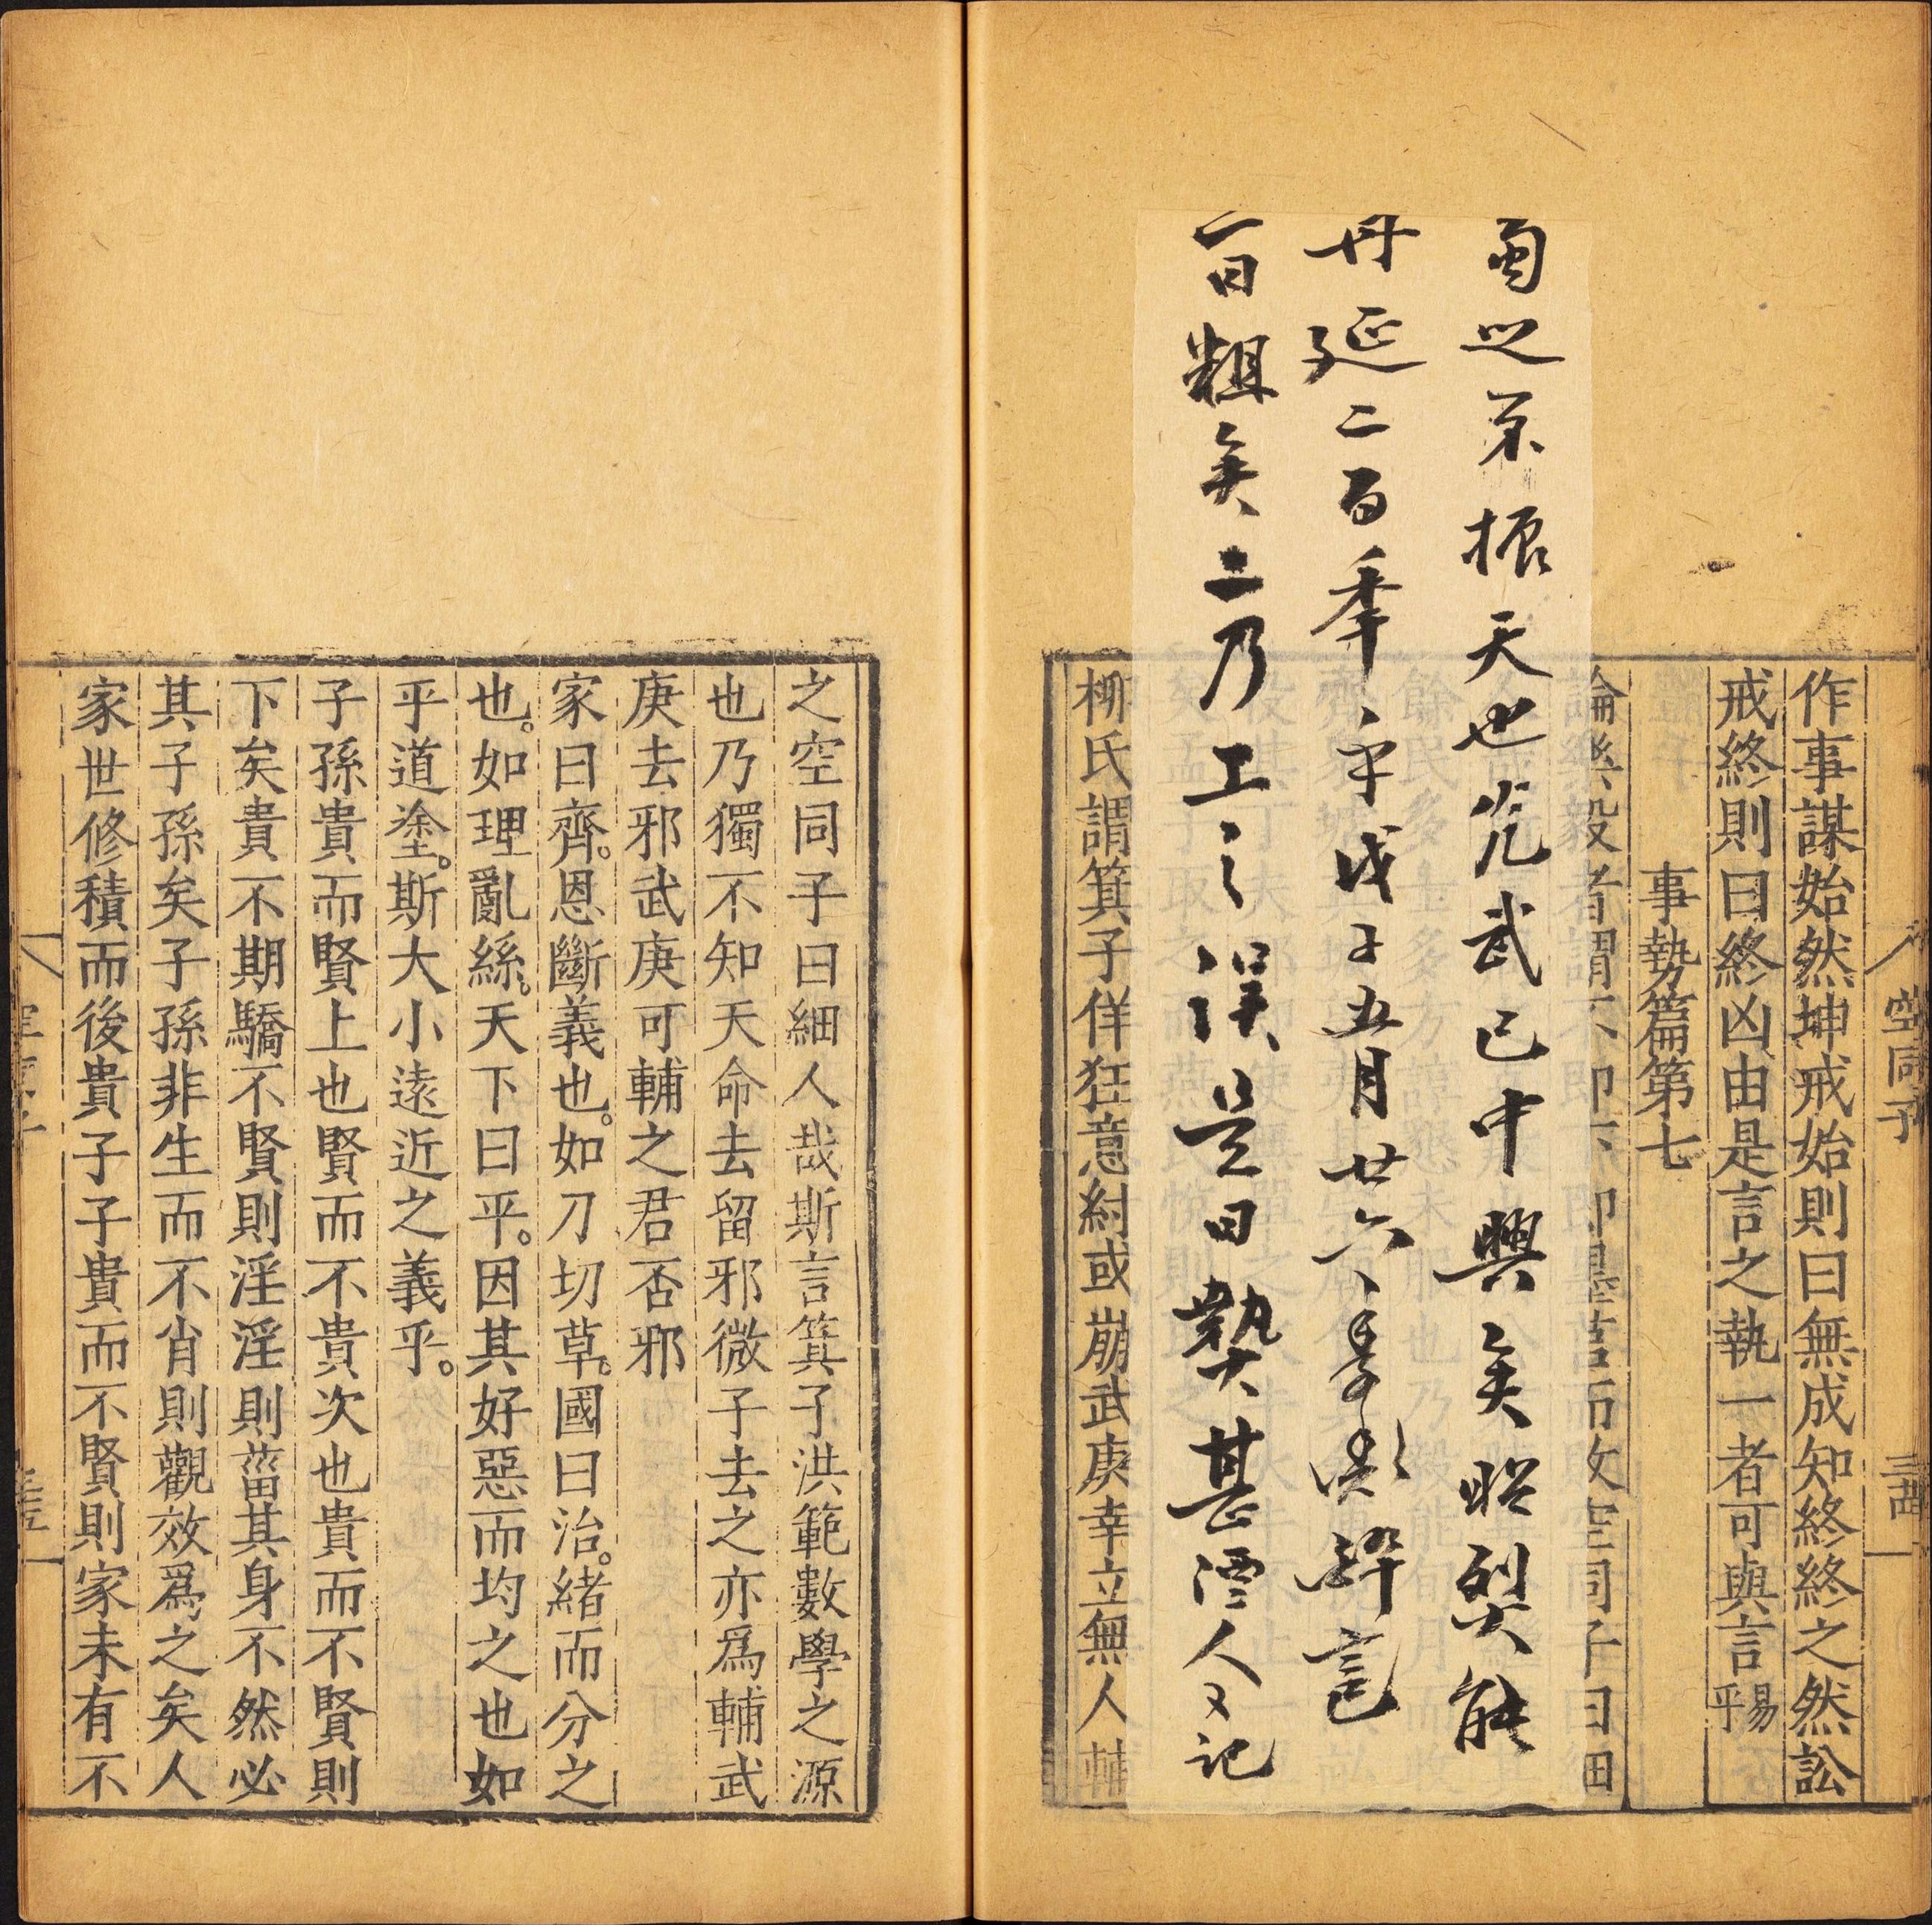 空同子
三十四
作事謀始然坤戒始則曰無成知終終之然訟
戒終則曰終凶由是言之執一者可與言易乎
事勢篇第七
蜀之不振天也光武已中興矣昭烈其能
再延二百年乎戊子五月廿六
百粗矣二乃工之誤是日熱甚 人又記
柳氏謂箕子佯狂意紂或崩武庚幸立無人輔
之空同子曰細人哉斯言箕子洪範數學之源
也乃獨不知天命去留邪微子去之亦爲輔武
庚去邪武庚可輔之君否邪
家曰齊。恩斷義也。如刀切草。國曰治。緒而分之
也。如理亂絲。天下曰平。因其好惡而均之也如
乎道塗。斯大小遠近之義乎。
子孫貴而賢上也賢而不貴次也貴而不賢則
下矣貴不期驕不賢則淫淫則菑其身不然必
其子孫矣子孫非生而不肖則觀效爲之矣人
家世修積而後貴子子貴而不賢則家未有不